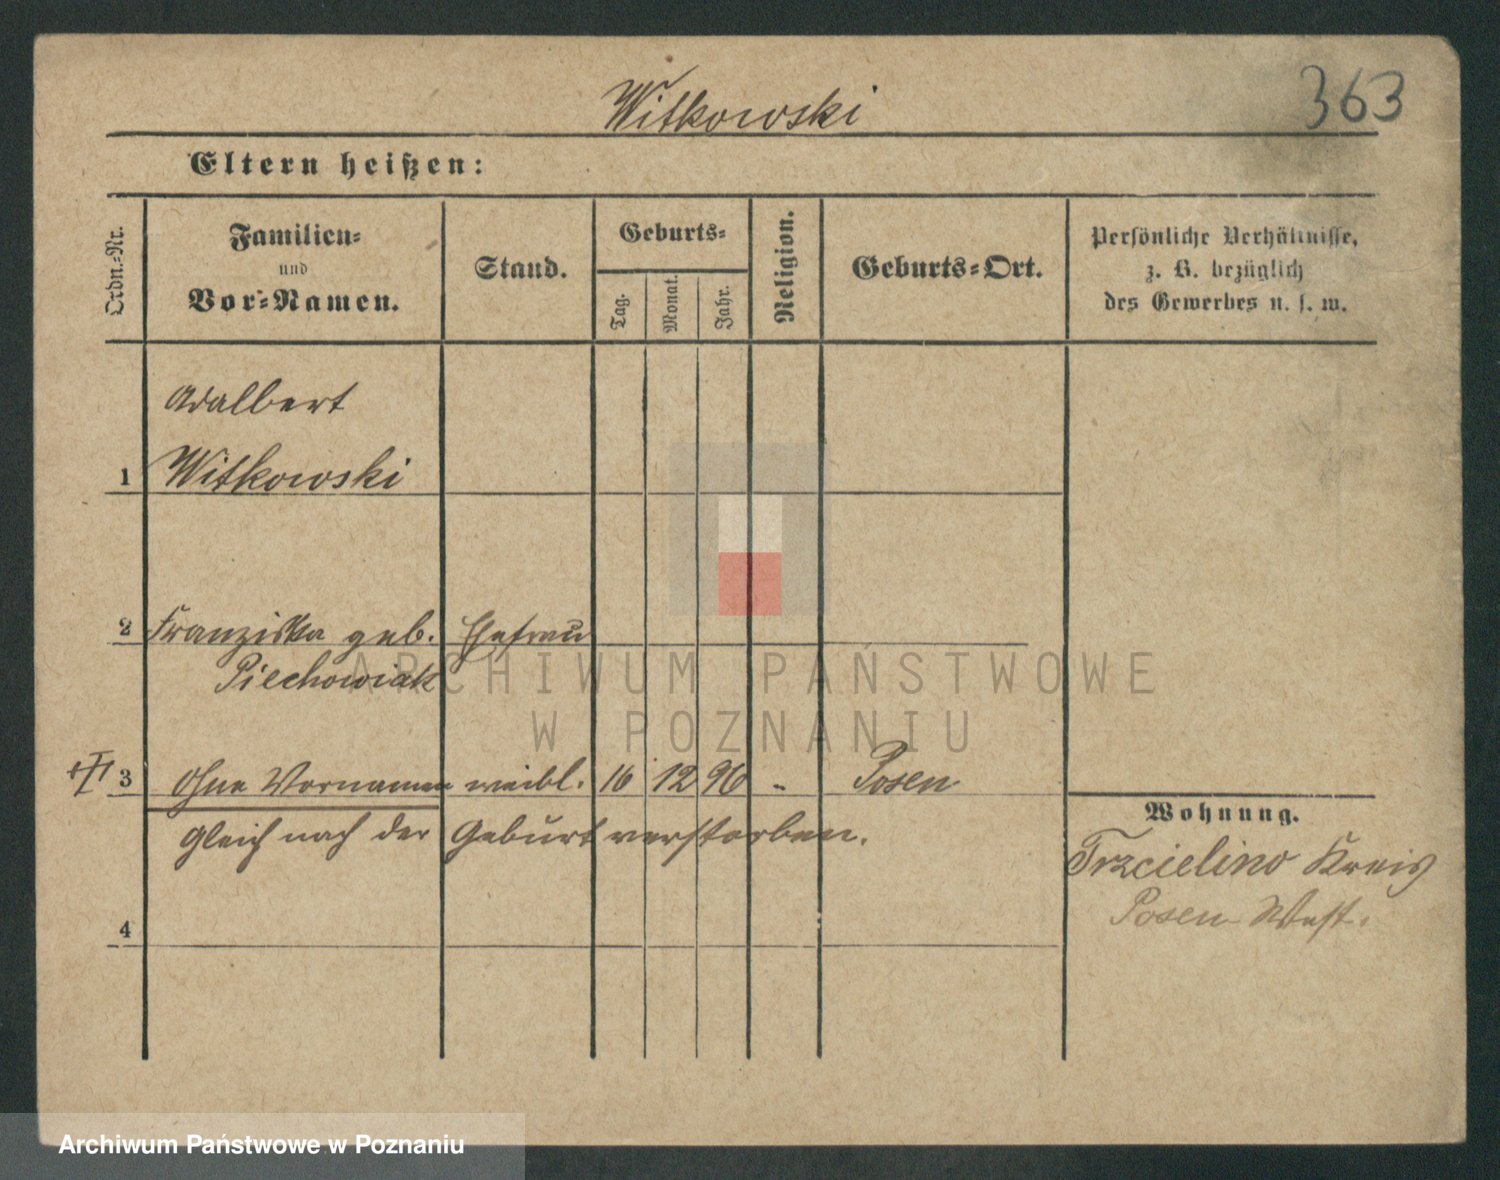 Witkowski
363
Eltern heißen:
Ordn.-Nr.
Familien-
und
Vor-Namen.
Stand.
Geburts-
Tag.
Monat.
Jahr.
Religion.
Geburts-Ort.
Persönliche Verhältnisse,
z. B. bezüglich
des Gewerbes u. s. w.
Adalbert
1 Witkowski
2 Franziska geb. Ehefrau
Piechowiak
ARCHIWUM PAŃSTWOWE
W POZNANIU
3 Ohne Vornamen weibl. 16 12 96 - Posen
gleich nach der Geburt verstorben.
Wohnung.
Trzcielino Kreis
Posen West.
4
Archiwum Państwowe w Poznaniu